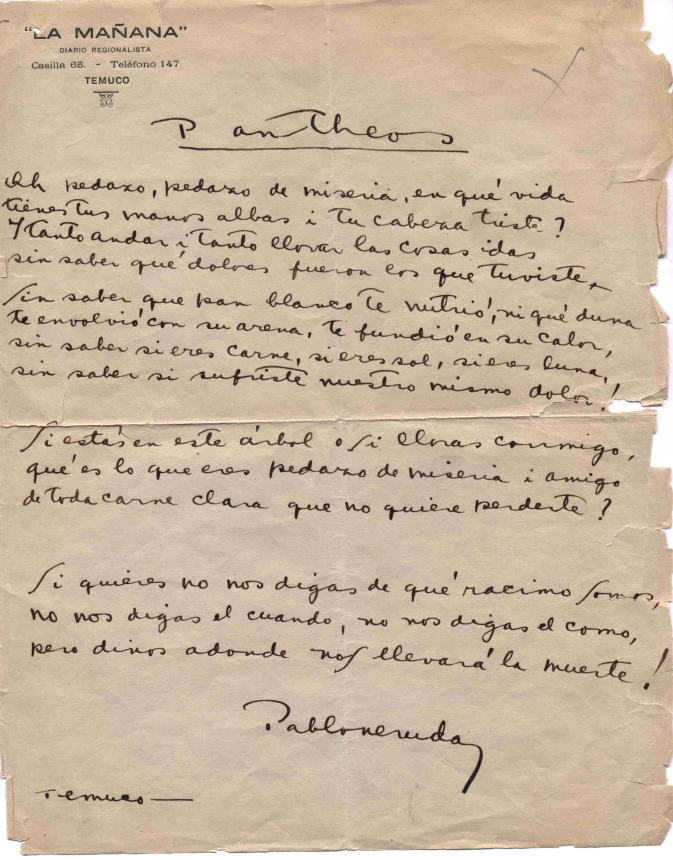 "LA MAÑANA"
DIARIO REGIONALISTA
Casilla 65. - Teléfono 147
TEMUCO
Pantheos
Oh pedazo, pedazo de miseria, en qué vida
tienes tus manos albas i tu cabeza triste?
Y tanto andar i tanto llorar las cosas idas
sin saber qué dolores fueron los que tuviste,
Sin saber que pan blanco te nutrió, ni qué duna
te envolvió con su arena, te fundió en su calor,
sin saber si eres carne, si eres sol, si eres luna,
sin saber si sufriste nuestro mismo dolor!
Si estás en este árbol o si lloras conmigo,
qué es lo que eres pedazo de miseria i amigo
de toda carne clara que no quiere perderte?
Si quieres no nos digas de qué racimo somos,
no nos digas el cuando, no nos digas el como,
pero dinos adonde nos llevará la muerte!
Pablo neruda
Temuco—